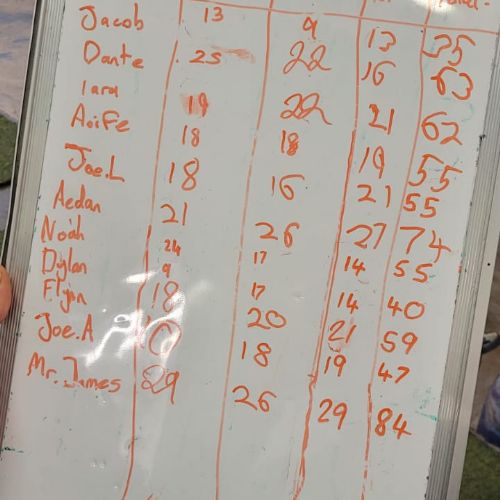 Jacob 13 9 13 35
Dante 25 22 16 63
Iara 19 22 21 62
Aoife 18 18 19 55
Joe.L 18 16 21 55
Aedan 21 26 27 74
Noah 24 17 14 55
Dylan 9 17 14 40
Flynn 18 20 21 59
Joe.A 10 18 19 47
Mr. James 29 26 29 84